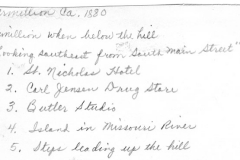 ermillion Ca. 1880
rmillion when below the hill
ooking southeast from "South Main Street"
1. St. Nicholas Hotel
2. Carl Jensen Drug Store
3. Butler Studio
4. Island in Missouri River
5. Steps leading up the hill